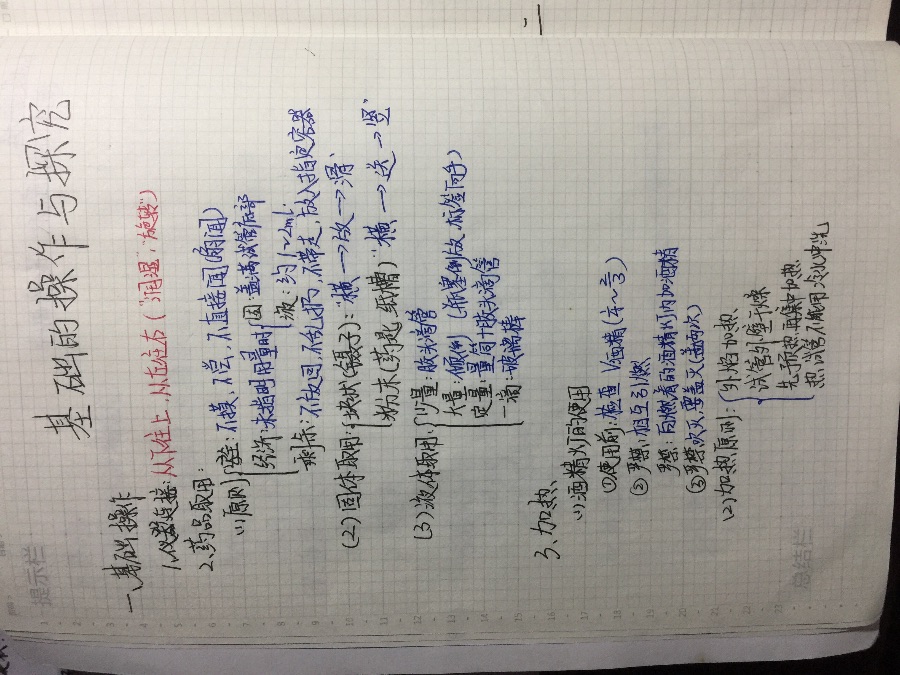 基础的操作与探究
一、基础操作
1、仪器连接:从下往上,从左往右("润湿","旋转")
2、药品取用:
(1)原则 安全:不摸、不尝、不直接闻(扇闻)
经济:未指明用量时 固:盖满试管底部
液:约1~2ml
剩余:不放回,不乱扔,不带走,放入指定容器
(2)固体取用: 块状(镊子):"横→放→滑"
粉末(药匙 纸槽)"横→送→竖"
(3)液体取用 少量:胶头滴管
大量:倾倒(瓶塞倒放 标签向手)
定量:量筒+胶头滴管
一滴:玻璃棒
3、加热、
(1)酒精灯的使用
①使用前:检查 酒精
②严禁:相互引燃
严禁:向燃着的酒精灯内加酒精
③严禁吹灭,要盖灭(盖两次)
(2)加热原则: 外焰加热
试管外壁干燥
先预热 再集中加热
热试管不能用冷水冲洗
提示栏
总结栏
1
2
3
4
5
6
7
8
9
10
11
12
13
14
15
16
17
18
19
20
21
22
23